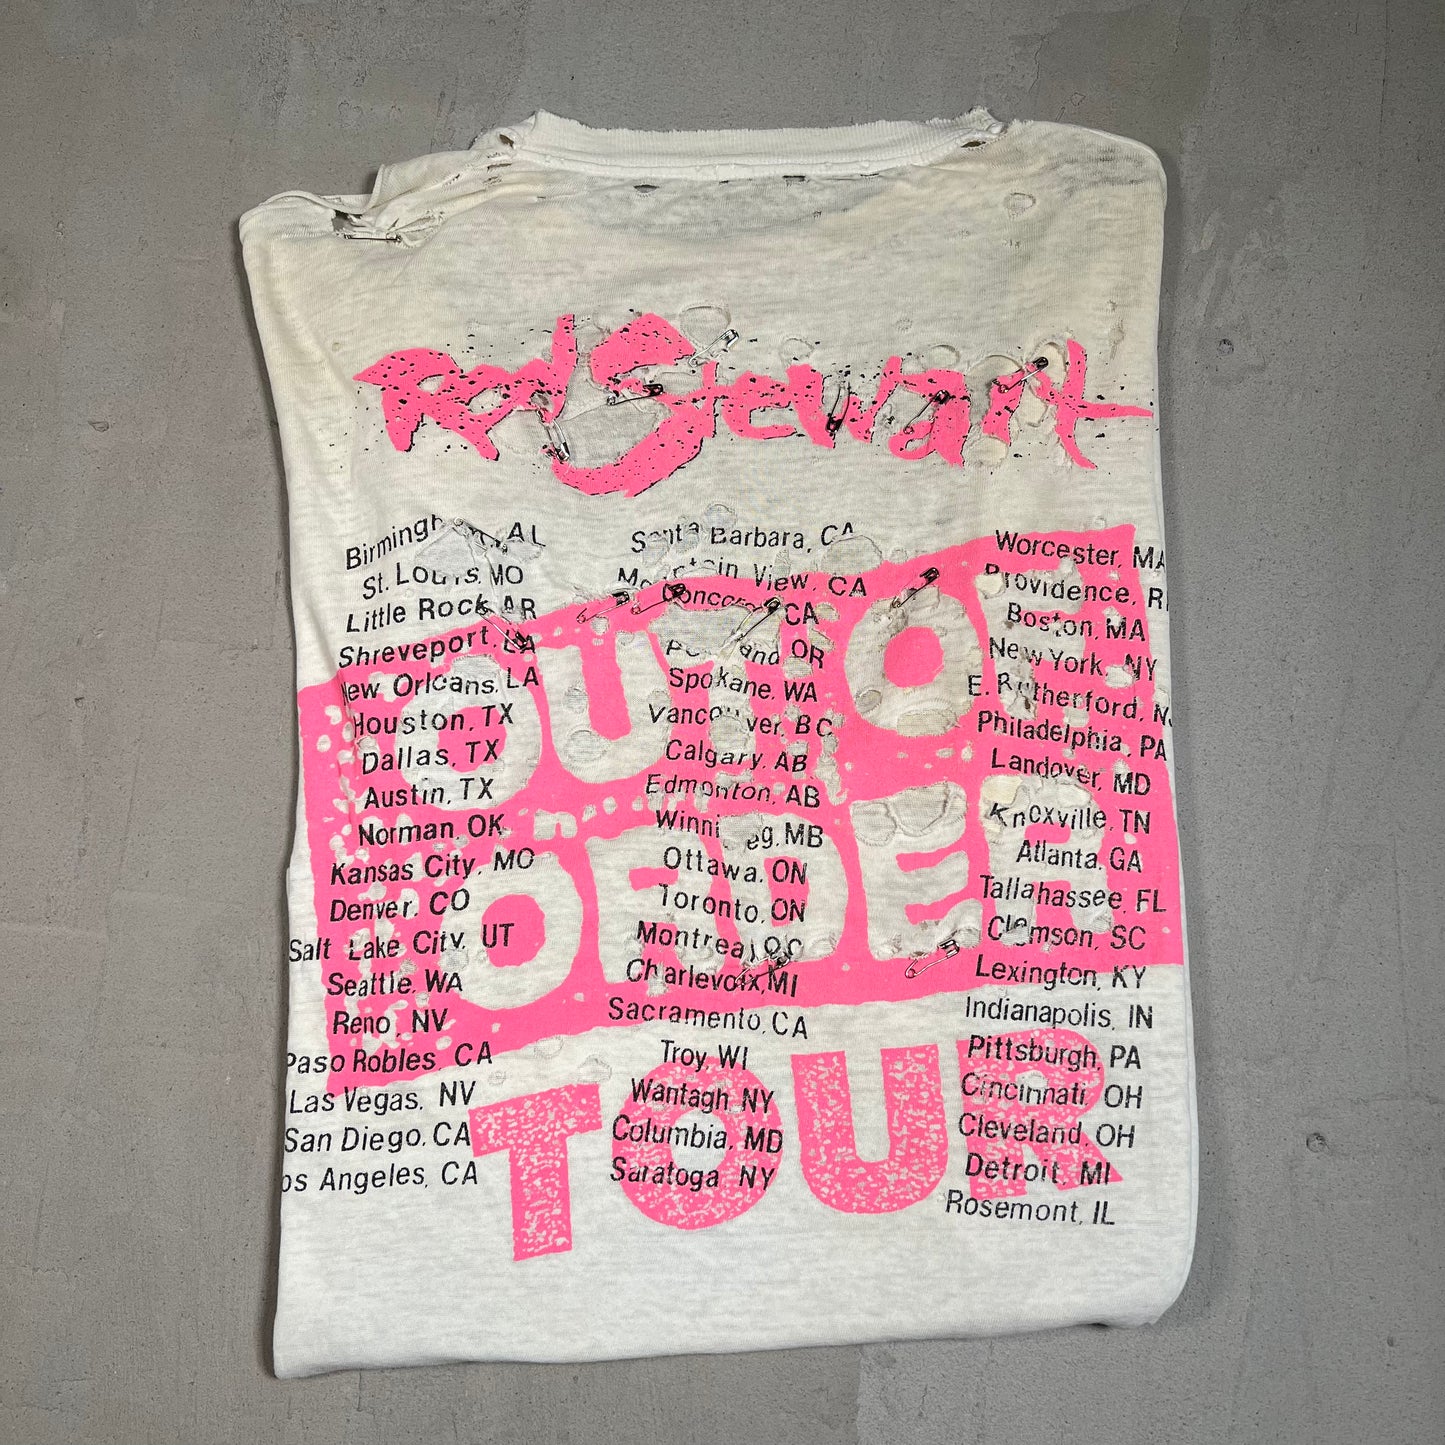 Rod Stewart
Birmingham, AL
St. Louis, MO
Little Rock, AR
Shreveport, LA
New Orleans, LA
Houston, TX
Dallas, TX
Austin, TX
Norman, OK
Kansas City, MO
Denver, CO
Salt Lake City, UT
Seattle, WA
Reno, NV
Paso Robles, CA
Las Vegas, NV
San Diego, CA
os Angeles, CA
Santa Barbara, CA
Mountain View, CA
Concord, CA
Portland, OR
Spokane, WA
Vancouver, BC
Calgary, AB
Edmonton, AB
Winnipeg, MB
Ottawa, ON
Toronto, ON
Montreal, QC
Charlevoix, MI
Sacramento, CA
Troy, WI
Wantagh, NY
Columbia, MD
Saratoga NY
Worcester, MA
Providence, RI
Boston, MA
New York, NY
E. Rutherford, NJ
Philadelphia, PA
Landover, MD
Knoxville, TN
Atlanta, GA
Tallahassee, FL
Clemson, SC
Lexington, KY
Indianapolis, IN
Pittsburgh, PA
Cincinnati, OH
Cleveland, OH
Detroit, MI
Rosemont, IL
OUT OF
ORDER
TOUR